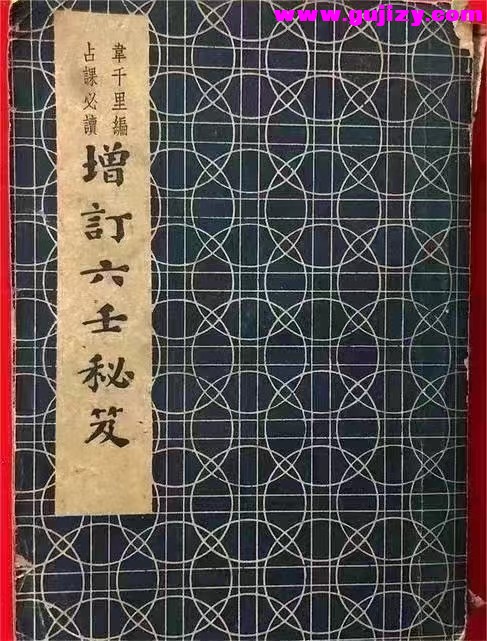 www.gujizy.com
韋千里編
占課必讀
增訂六壬秘笈